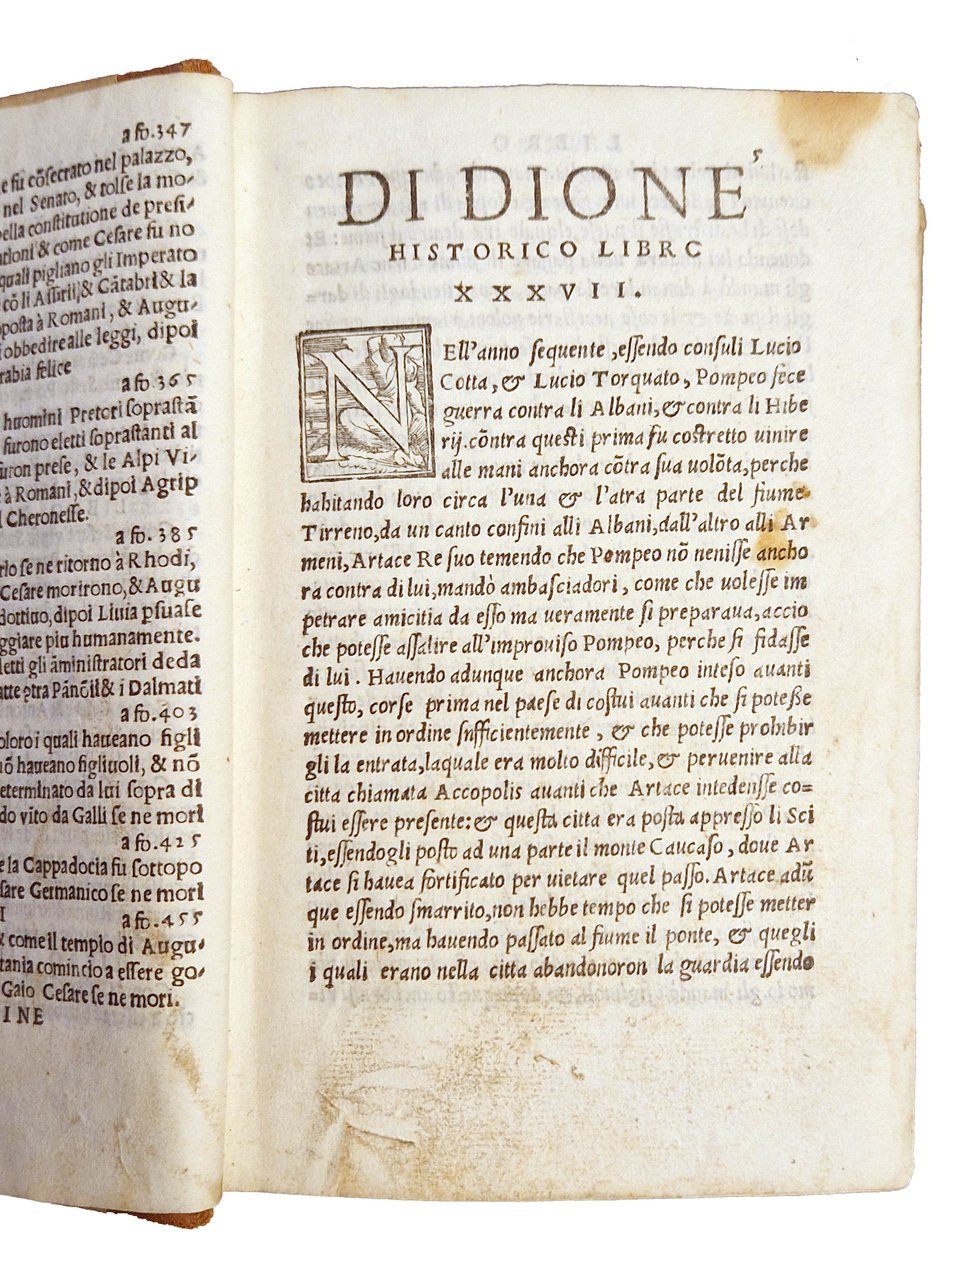 a fo.347
e fu cõsecrato nel palazzo,
nel Senato, & tolse la mo-
bella constitutione de presi-
ationi & come Cesare fu no
quali pigliano gli Imperato
cõ li Assirii, & Cãtabri & la
posta à Romani, & Augu-
obbedire alle leggi, dipoi
rabia felice
a fo.365
huomini Pretori soprastã
furono eletti soprastanti al
furon prese, & le Alpi Vi-
à Romani, & dipoi Agrip
l Cheronesse.
a fo.385
rio se ne ritorno à Rhodi,
Cesare morirono, & Augu
dottiuo, dipoi Liuia psuase
ggiare piu humanamente.
letti gli ãministratori de da
atte ɔtra Pãnõii & i Dalmati
a fo.403
oloro i quali haueano figli
nõ haueano figliuoli, & nõ
determinato da lui sopra di
do vĩto da Galli se ne mori
a fo.425
e la Cappadocia fu sottopo
sare Germanico se ne mori
I
a fo.455
& come il tempio di Augu-
tania comincio a essere go-
Gaio Cesare se ne mori.
INE
5
DI DIONE
HISTORICO LIBRC
XXXVII.
NEll'anno sequente, essendo consuli Lucio
Cotta, & Lucio Torquato, Pompeo fece
guerra contra li Albani, & contra li Hibe
rij. cõntra questi prima fu costretto uinire
alle mani anchora cõtra sua uolõta, perche
habitando loro circa l'una & l'atra parte del fiume
Tirreno, da un canto confini alli Albani, dall'altro alli Ar
meni, Artace Re suo temendo che Pompeo nõ nenisse ancho
ra contra di lui, mandò ambasciadori, come che uolesse im
petrare amicitia da esso ma ueramente si preparaua, accio
che potesse assalire all'improuiso Pompeo, perche si fidasse
di lui. Hauendo adunque anchora Pompeo inteso auanti
questo, corse prima nel paese di costui auanti che si poteße
mettere in ordine snfficientemente, & che potesse prohibir
gli la entrata, laquale era molto difficile, & peruenire alla
citta chiamata Accopolis auanti che Artace intedensse co=
stui essere presente: & questa citta era posta appresso li Sci
ti, essendogli posto ad una parte il monte Caucaso, doue Ar
tace si hauea fortificato per uietare quel passo. Artace adũ
que essendo smarrito, non hebbe tempo che si potesse metter
in ordine, ma hauendo passato al fiume il ponte, & quegli
i quali erano nella citta abandonoron la guardia essendo